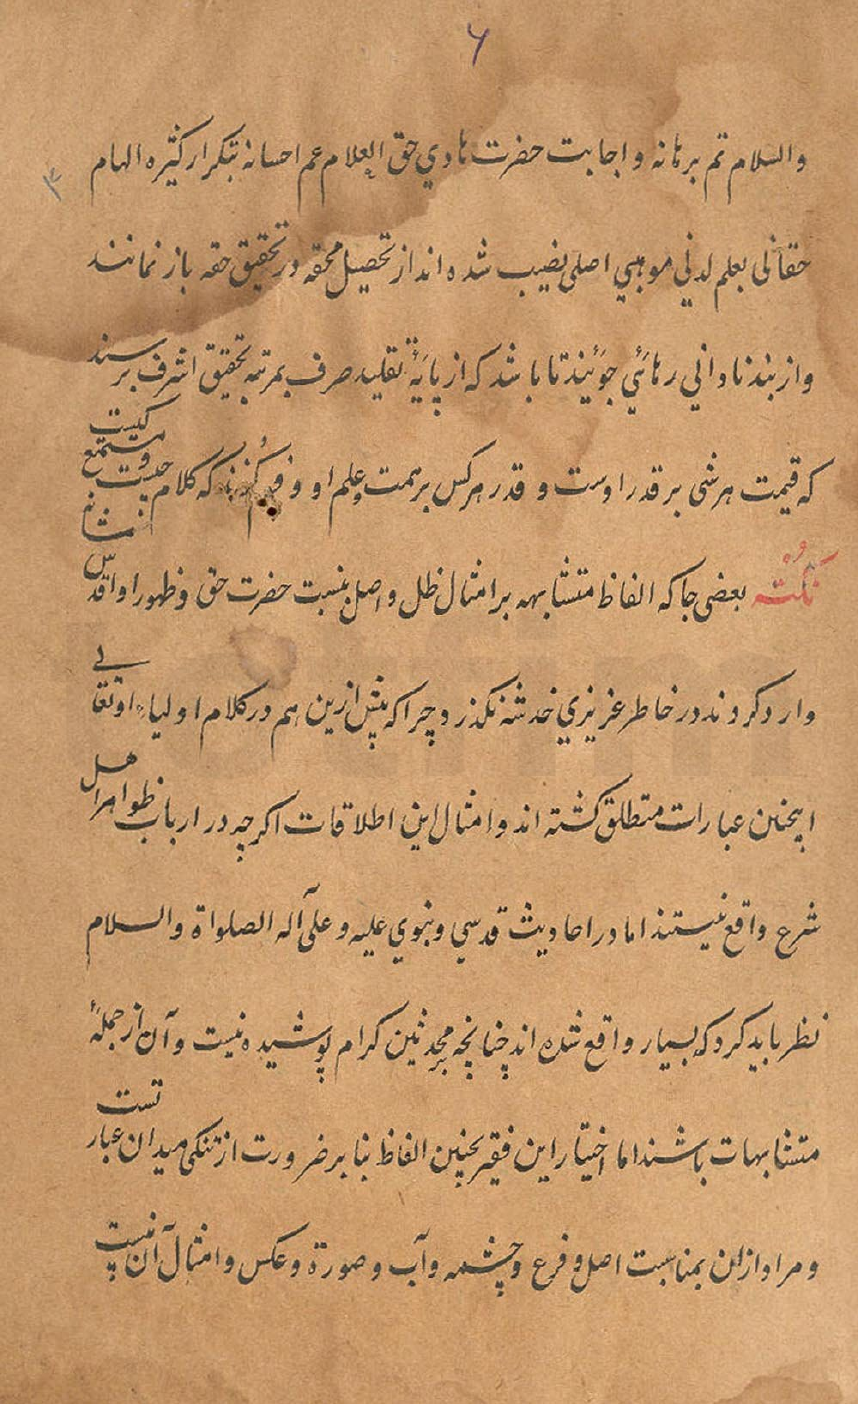 ۶
والسلام تم برهانه و اجابت حضرت هادي حق العلام عم احسانه بتکرار کثیره الهام
۳
حقانی بعلم لدني موهبي اصلی نصیب شده اند از تحصیل محقه در تحقیق حقه باز نمانند
و از بند نادانی رهائي جویند تا باشد که از پایۀ تقلید صرف بمرتبه تحقیق اشرف برسند
که قیمت هر شی بر قدر اوست و قدر هر کس بر همت و علم او که کلام چیست و مستمع کیست
نکته بعضی جا که الفاظ متشابهه بر امثال ظل و اصل بنسبت حضرت حق و ظهور او اقدس
وارد کردند در خاطر عزیزي خدشه نگذرد چرا که پیش ازین هم در کلام اولیاء او تعالی
اینچنین عبارات متطلق کشته اند و امثال این اطلاقات اکرچه در ارباب ظواهر اهل
شرع واقع نیستند اما در احادیث قدسي و نبوي علیه و علی آله الصلواة والسلام
نظر باید کرد که بسیار واقع شده اند چنانچه بر محدثین کرام پوشیده نیست و آن از جملۀ
متشابهات باشند اما اختیار این فقیر بچنین الفاظ بنا بر ضرورت از تنکی میدان عبارتست
و مراد ازان بمناسبت اصل و فرع و چشمه و آب و صورة و عکس و امثال آن نیست